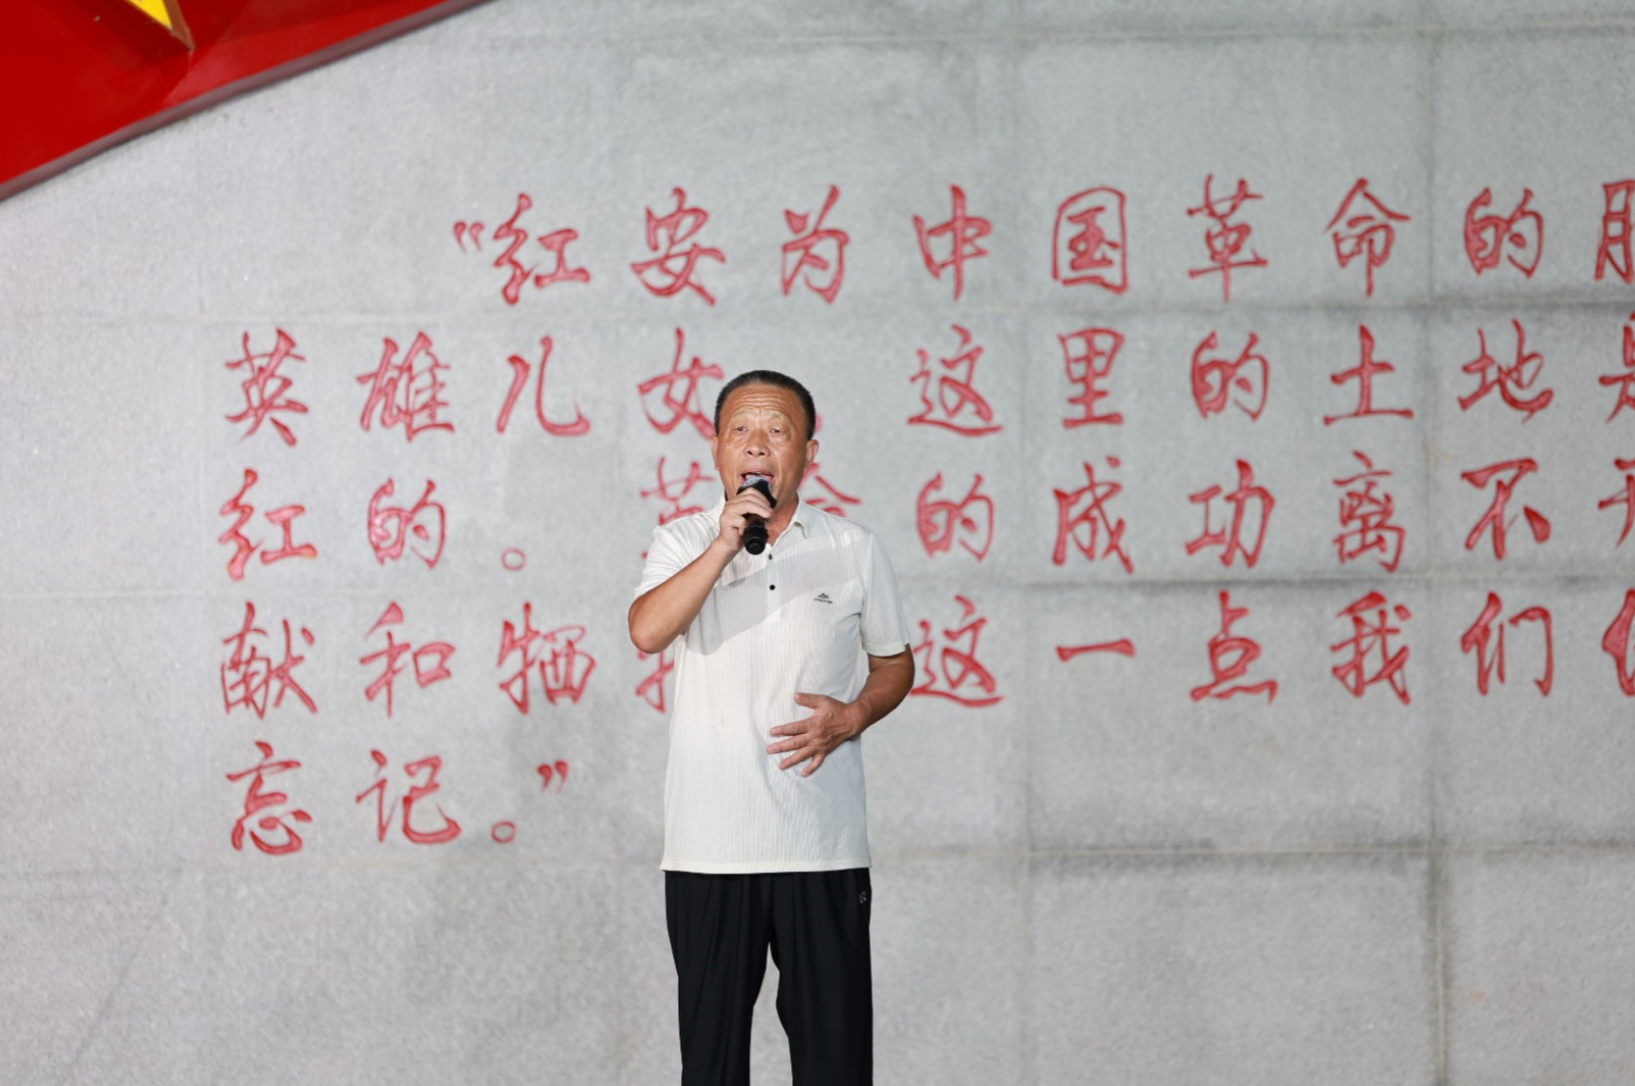 “红安为中国革命的
英雄儿女 这里的土地是
红的。革命的成功离不开
献和牺牲 这一点我们
忘记。”